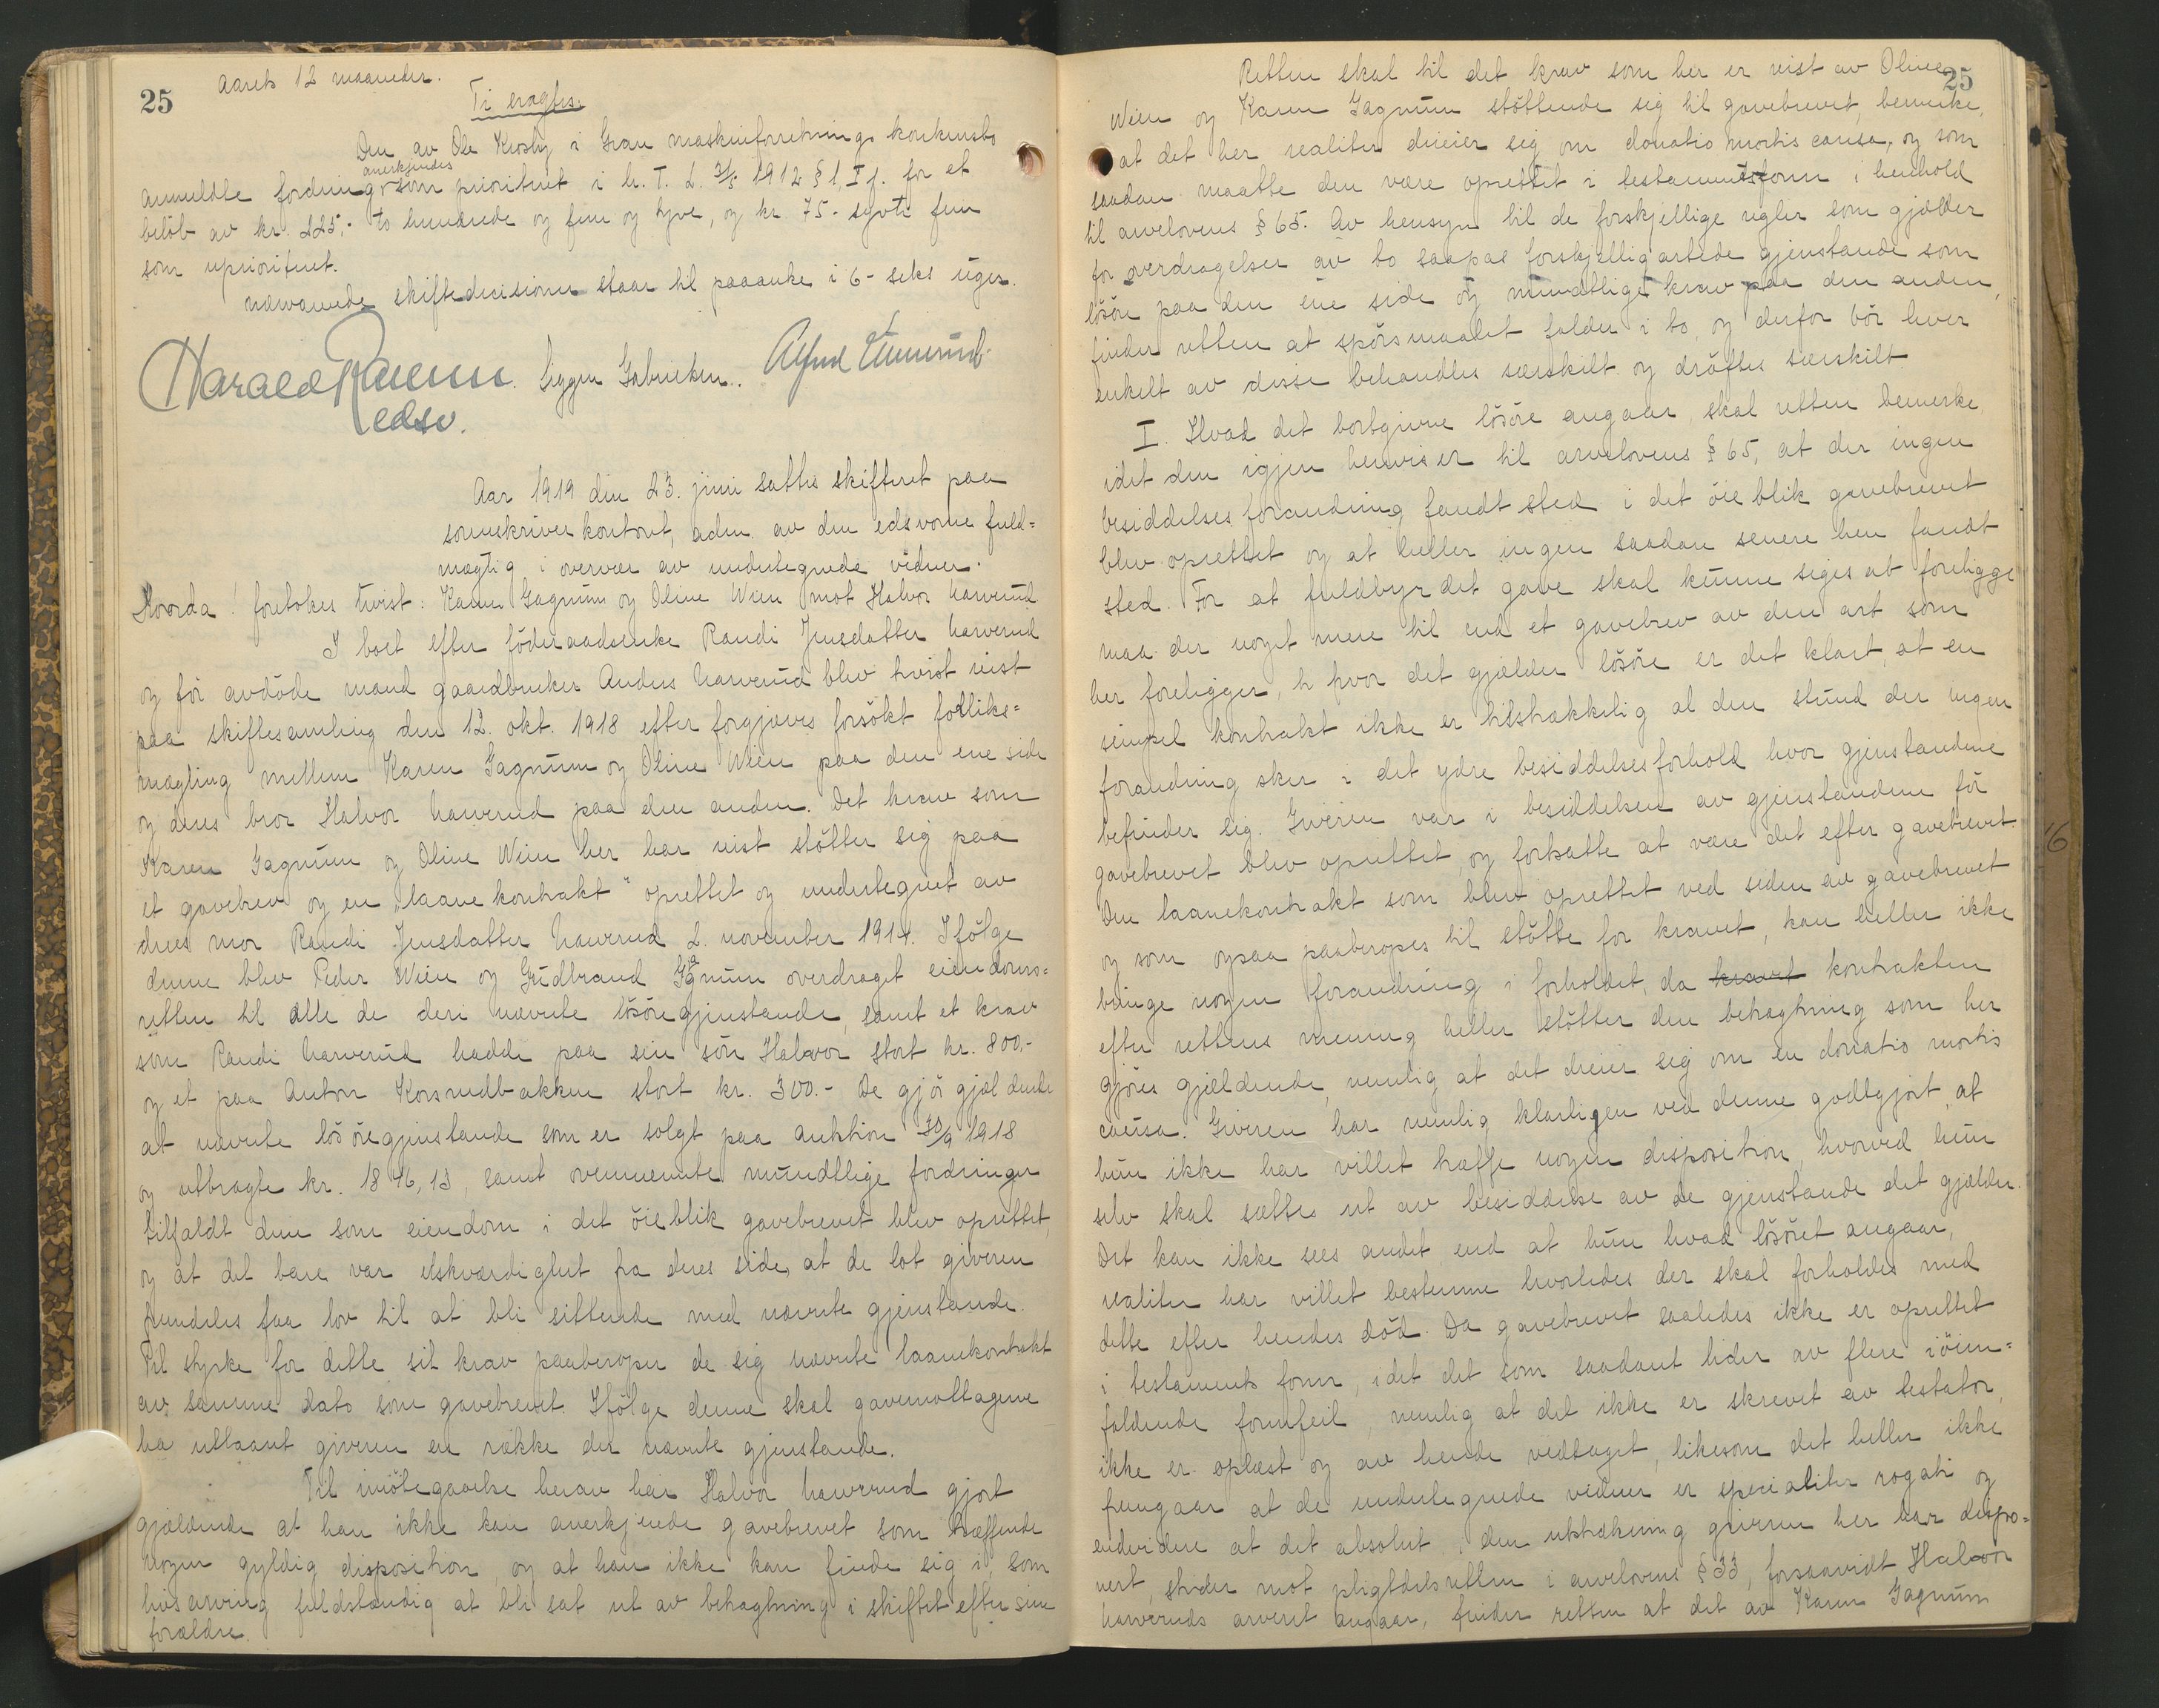 25
aarets 12 maaneder.
Ti eragtes:
Den av Ole Kirsby i Gran maskinforretnings konkursbo
anerkjendes
anmeldte fordring som prioritert i h. T. L. 3/5 1912 § 1, I f. for et
beløb av kr. 225,- to hundrede og fem og tyve, og kr. 75.- sytti fem
som uprioritert.
nærværende skiftedecisioner staar til paaanke i 6- seks uger.
Harald
edsv.
Alfred
Aar 1919 den 23. juni sattes skifteret paa
sorenskriverkontoret, adm. av den edsvorne fuld=
mægtig i overvær av undertegnede vidner.
Hvorda! foretokes tvist: Karen Gagnum og Oline Wien mot Halvor Narverud
I boet efter føderaadsenke Randi Jensdatter Narverud
og før avdøde mand gaardbruker Anders Narverud blev tvist reist
paa skiftesamling den 12. okt. 1918 efter forgjæves forsøkt forliks=
mægling mellem Karen Gagnum og Oline Wien paa den ene side
og deres bror Halvor Narverud paa den anden. Det krav som
Karen Gagnum og Oline Wien her har reist støtter sig paa
et gavebrev og en „laanekontrakt" oprettet og undertegnet av
deres mor Randi Jensdatter Narverud 2. november 1914. Ifølge
denne blev Peder Wien og Gudbrand Gagnum overdraget eiendoms=
retten til alle de deri nævnte løsøregjenstande, samt et krav
som Randi Narverud hadde paa sin søn Halvor stort kr. 800,-
og et paa Anton Korsrudbakken stort kr. 300.- De gjør gjældende
at nævnte løsøregjenstande som er solgt paa auktion 30/9 1918
og utbragte kr. 1846,13, samt ovennævnte mundtlige fordringer
tilfaldt dem som eiendom i det øieblik gavebrevet blev oprettet,
og at det bare var elskværdighet fra deres side, at de lot giveren
fremdeles faa lov til at bli sittende med nævnte gjenstande.
Til styrke for dette sit krav paaberoper de sig nævnte laanekontrakt
av samme dato som gavebrevet. Ifølge denne skal gavemottagerne
ha utlaant giveren en række der nævnte gjenstande.
Til imøtegaaelse herav har Halvor Narverud gjort
gjældende at han ikke kan anerkjende gavebrevet som træffende
nogen gyldig disposition, og at han ikke kan finde sig i, som
livsarving fuldstændig at bli sat ut av betragtning i skiftet efter sine
forældre.
25
Retten skal til det krav som her er reist av Oline
Wien og Karen Gagnum støttende sig til gavebrevet, bemerke,
at det her realiter dreier sig om donatio mortis causa, og som
saadan maatte den være oprettet i testamentsform i henhold
til arvelovens § 65. Av hensyn til de forskjellige regler som gjælder
for overdragelser av to saapas forskjelligartede gjenstande som
løsøre paa den ene side og mundtlige krav paa den anden,
finder retten at spørsmaalet falder i to, og derfor bør hver
enkelt av disse behandles særskilt og drøftes særskilt.
I. Hvad det bortgivne løsøre angaar, skal retten bemerke,
idet den igjen henviser til arvelovens § 65, at der ingen
besiddelsesforandring fandt sted i det øieblik gavebrevet
blev oprettet og at heller ingen saadan senere hen fandt
sted. For at fuldbyrdet gave skal kunne siges at foreligge
maa der noget mere til end et gavebrev av den art som
her foreligger, ti hvor det gjælder løsøre er det klart, at en
simpel kontrakt ikke er tilstrækkelig al den stund der ingen
forandring sker i det ydre besiddelsesforhold hvor gjenstandene
befinder sig. Giveren var i besiddelsen av gjenstandene før
gavebrevet blev oprettet, og fortsatte at være det efter gavebrevet.
Den laanekontrakt som blev oprettet ved siden av gavebrevet
og som ogsaa paaberopes til støtte for kravet, kan heller ikke
bringe nogen forandring i forholdet, da kravet kontrakten
efter rettens mening heller støtter den betragtning som her
gjøres gjældende, nemlig at det dreier sig om en donatio mortis
causa. Giveren har nemlig klarligen ved denne godtgjort, at
hun ikke har villet træffe nogen disposition, hvorved hun
selv skal sættes ut av besiddelse av de gjenstande det gjælder.
Det kan ikke sees andet end at hun hvad løsøret angaar,
realiter har villet bestemme hvorledes der skal forholdes med
dette efter hendes død. Da gavebrevet saaledes ikke er oprettet
i testaments form, idet det som saadant lider av flere iøine=
faldende formfeil, nemlig at det ikke er skrevet av testator,
ikke er oplæst og av hende vedtaget, likesom det heller ikke
fremgaar at de undertegnede vidner er specialiter rogati og
endvidere at det absolut i den utstrækning giveren her har dispo=
nert, strider mot pligtdelsretten i arvelovens § 33, forsaavidt Halvor
Narveruds arveret angaar, finder retten at det av Karen Gagnum
16